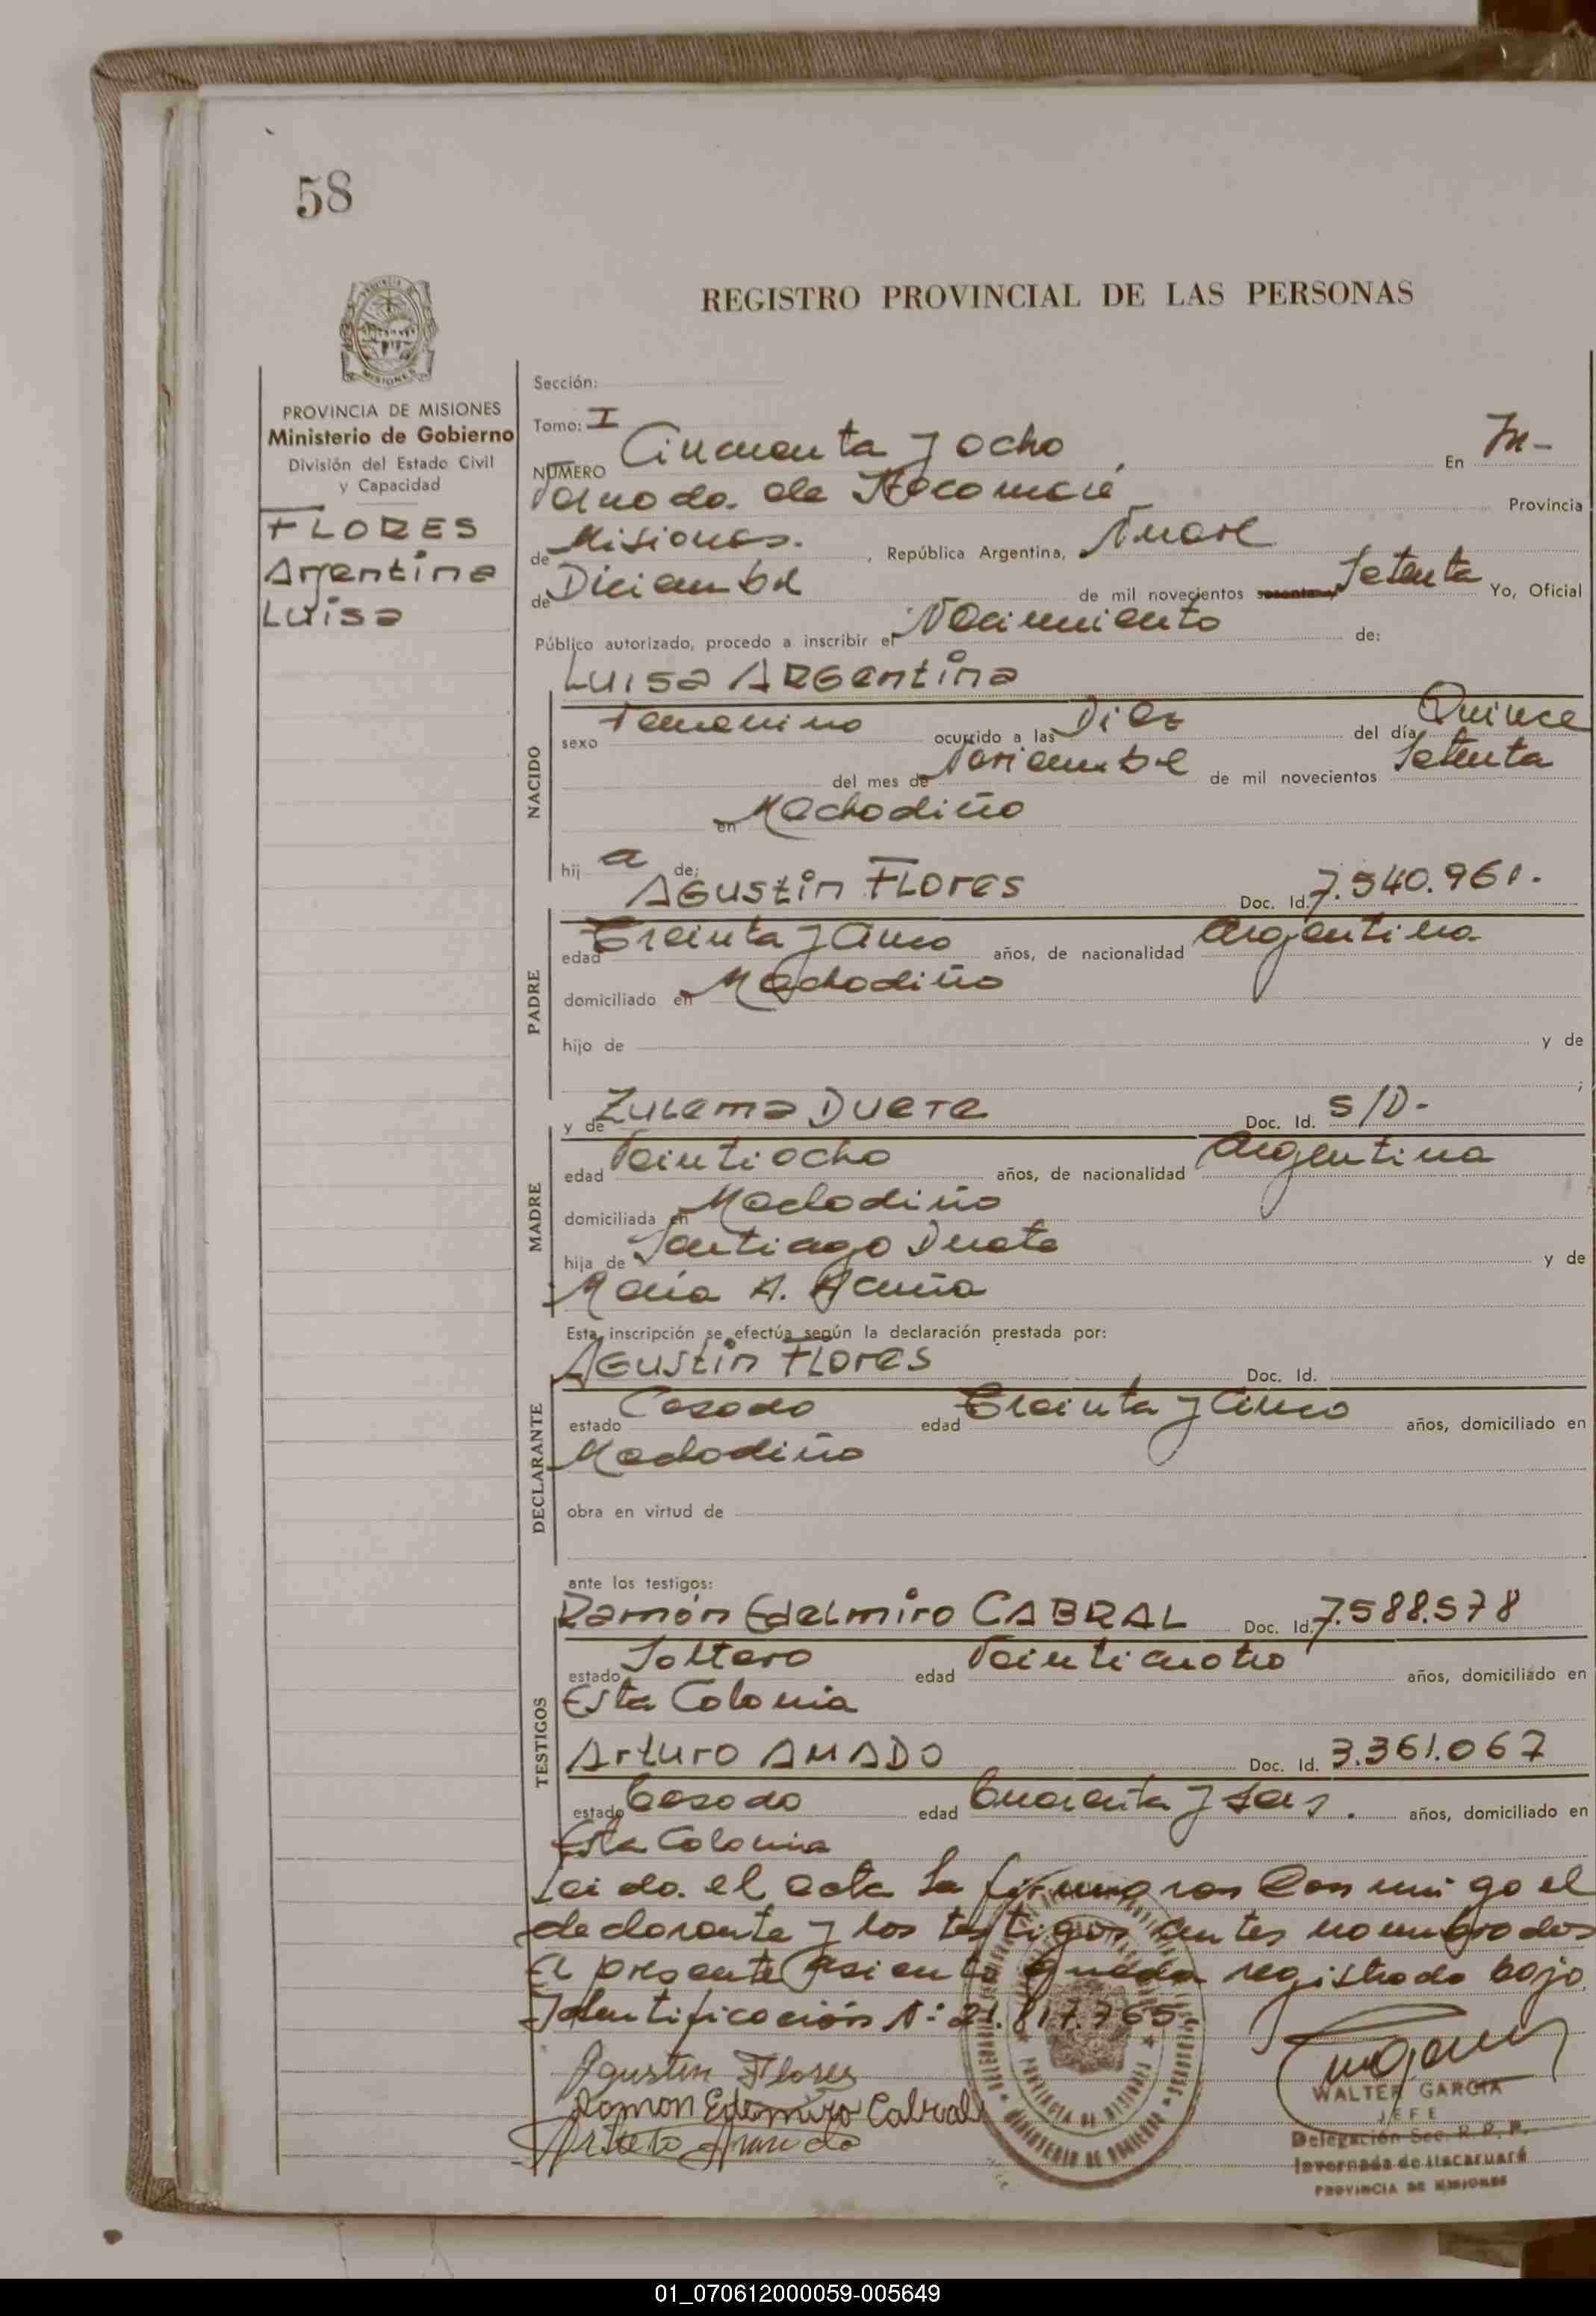 58
REGISTRO PROVINCIAL DE LAS PERSONAS
MISIONES
PROVINCIA DE MISIONES
Ministerio de Gobierno
División del Estado Civil
y Capacidad
FLORES
Argentina
Luisa
Sección:
Tomo: I
NÚMERO Cincuenta y ocho En In-
vernada de Itacaruaré Provincia
de Misiones. , República Argentina, Nueve
de Diciembre de mil novecientos Setenta Yo, Oficial
Público autorizado, procedo a inscribir el Nacimiento de:
Luisa ARGentina
NACIDO
sexo Femenino ocurrido a las Diez del día Quince
del mes de Noviembre de mil novecientos Setenta
en Machadiño
hij a de:
AGustin FLores Doc. Id. 7.540.961.
PADRE
edad Treinta y Cinco años, de nacionalidad Argentina
domiciliado en Machadiño
hijo de y de
;
y de ZuLema Duete Doc. Id. S/D-
MADRE
edad Veintiocho años, de nacionalidad Argentina
domiciliada en Machadiño
hija de Santiago Duete y de
María A. Acuña
Esta inscripción se efectúa según la declaración prestada por:
AGustin FLores Doc. Id.
DECLARANTE
estado Casado edad Treinta y Cinco años, domiciliado en
Machadiño
obra en virtud de
ante los testigos:
TESTIGOS
Ramón EdeLmiro CABRAL Doc. Id. 7.588.578
estado Soltero edad Veinticuatro años, domiciliado en
Esta Colonia
Arturo AMADO Doc. Id. 3.361.067
estado Casado edad Cuarenta y seis. años, domiciliado en
Esta Colonia
Leida el acta la firmaron Conmigo el
declarante y los testigos antes nombrados
El presente Asiento queda registrado bajo
Identificación N: 21.817.765.
Agustin Flores
Ramon Edemiro Cabral
Arturo Amado
PROVINCIA DE MISIONES
MINISTERIO DE GOBIERNO
WALTER GARCIA
JEFE
Delegación Sec. R. P. P.
Invernada de Itacaruaré
PROVINCIA DE MISIONES
01_070612000059-005649